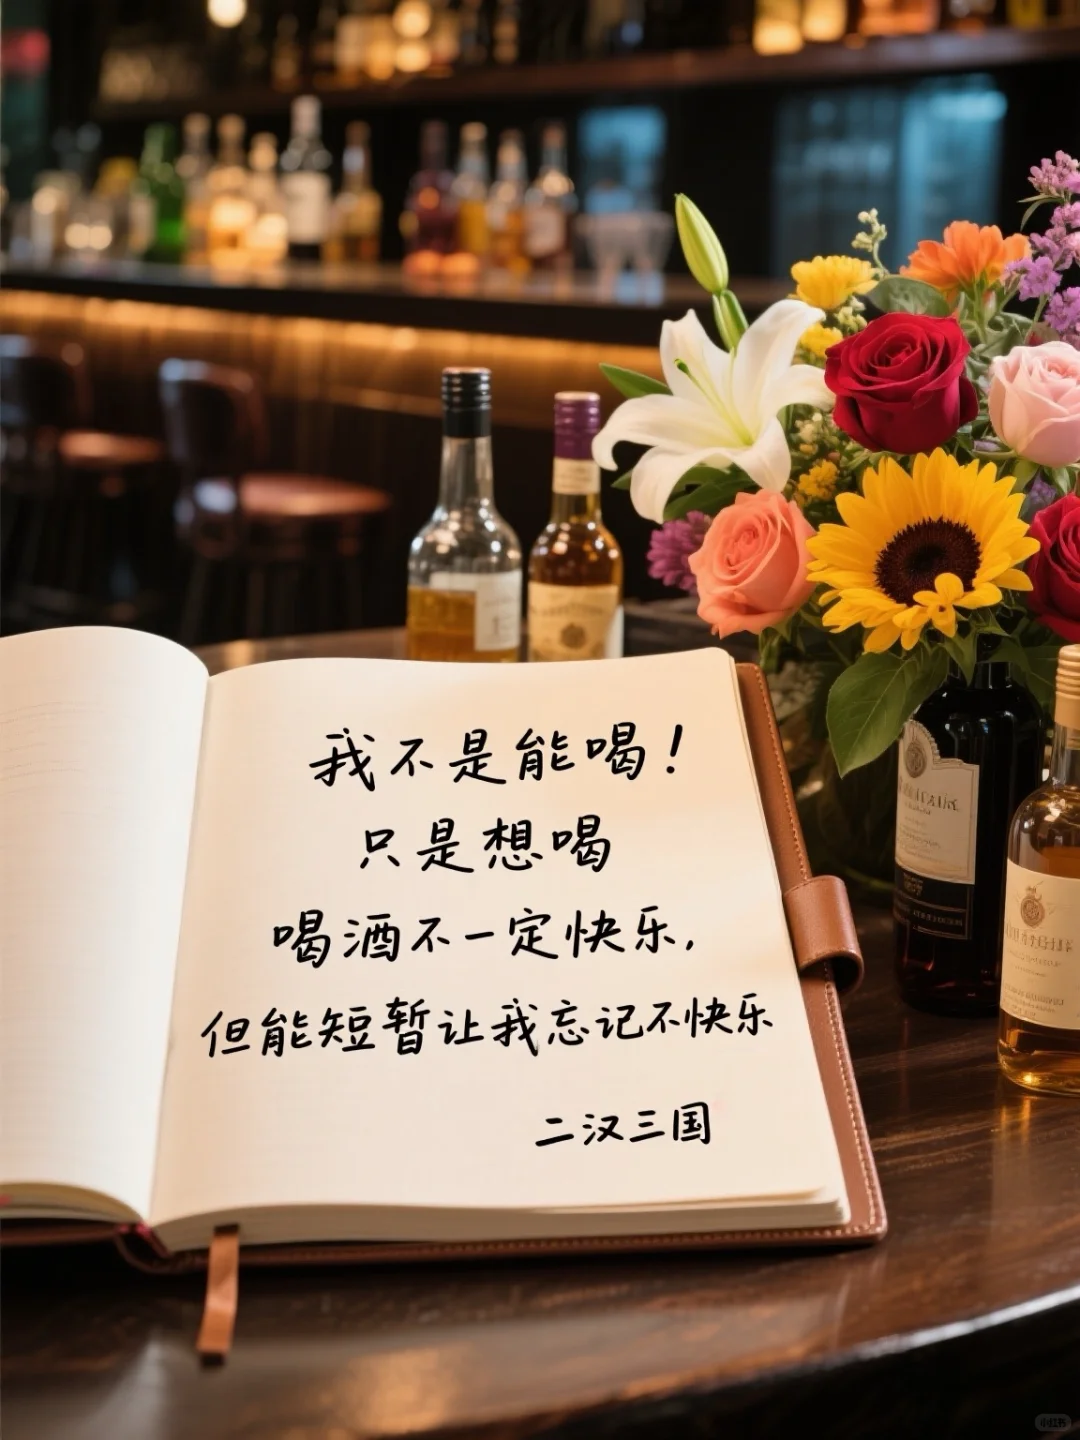 我不是能喝！
只是想喝
喝酒不一定快乐，
但能短暂让我忘记不快乐
二汉三国